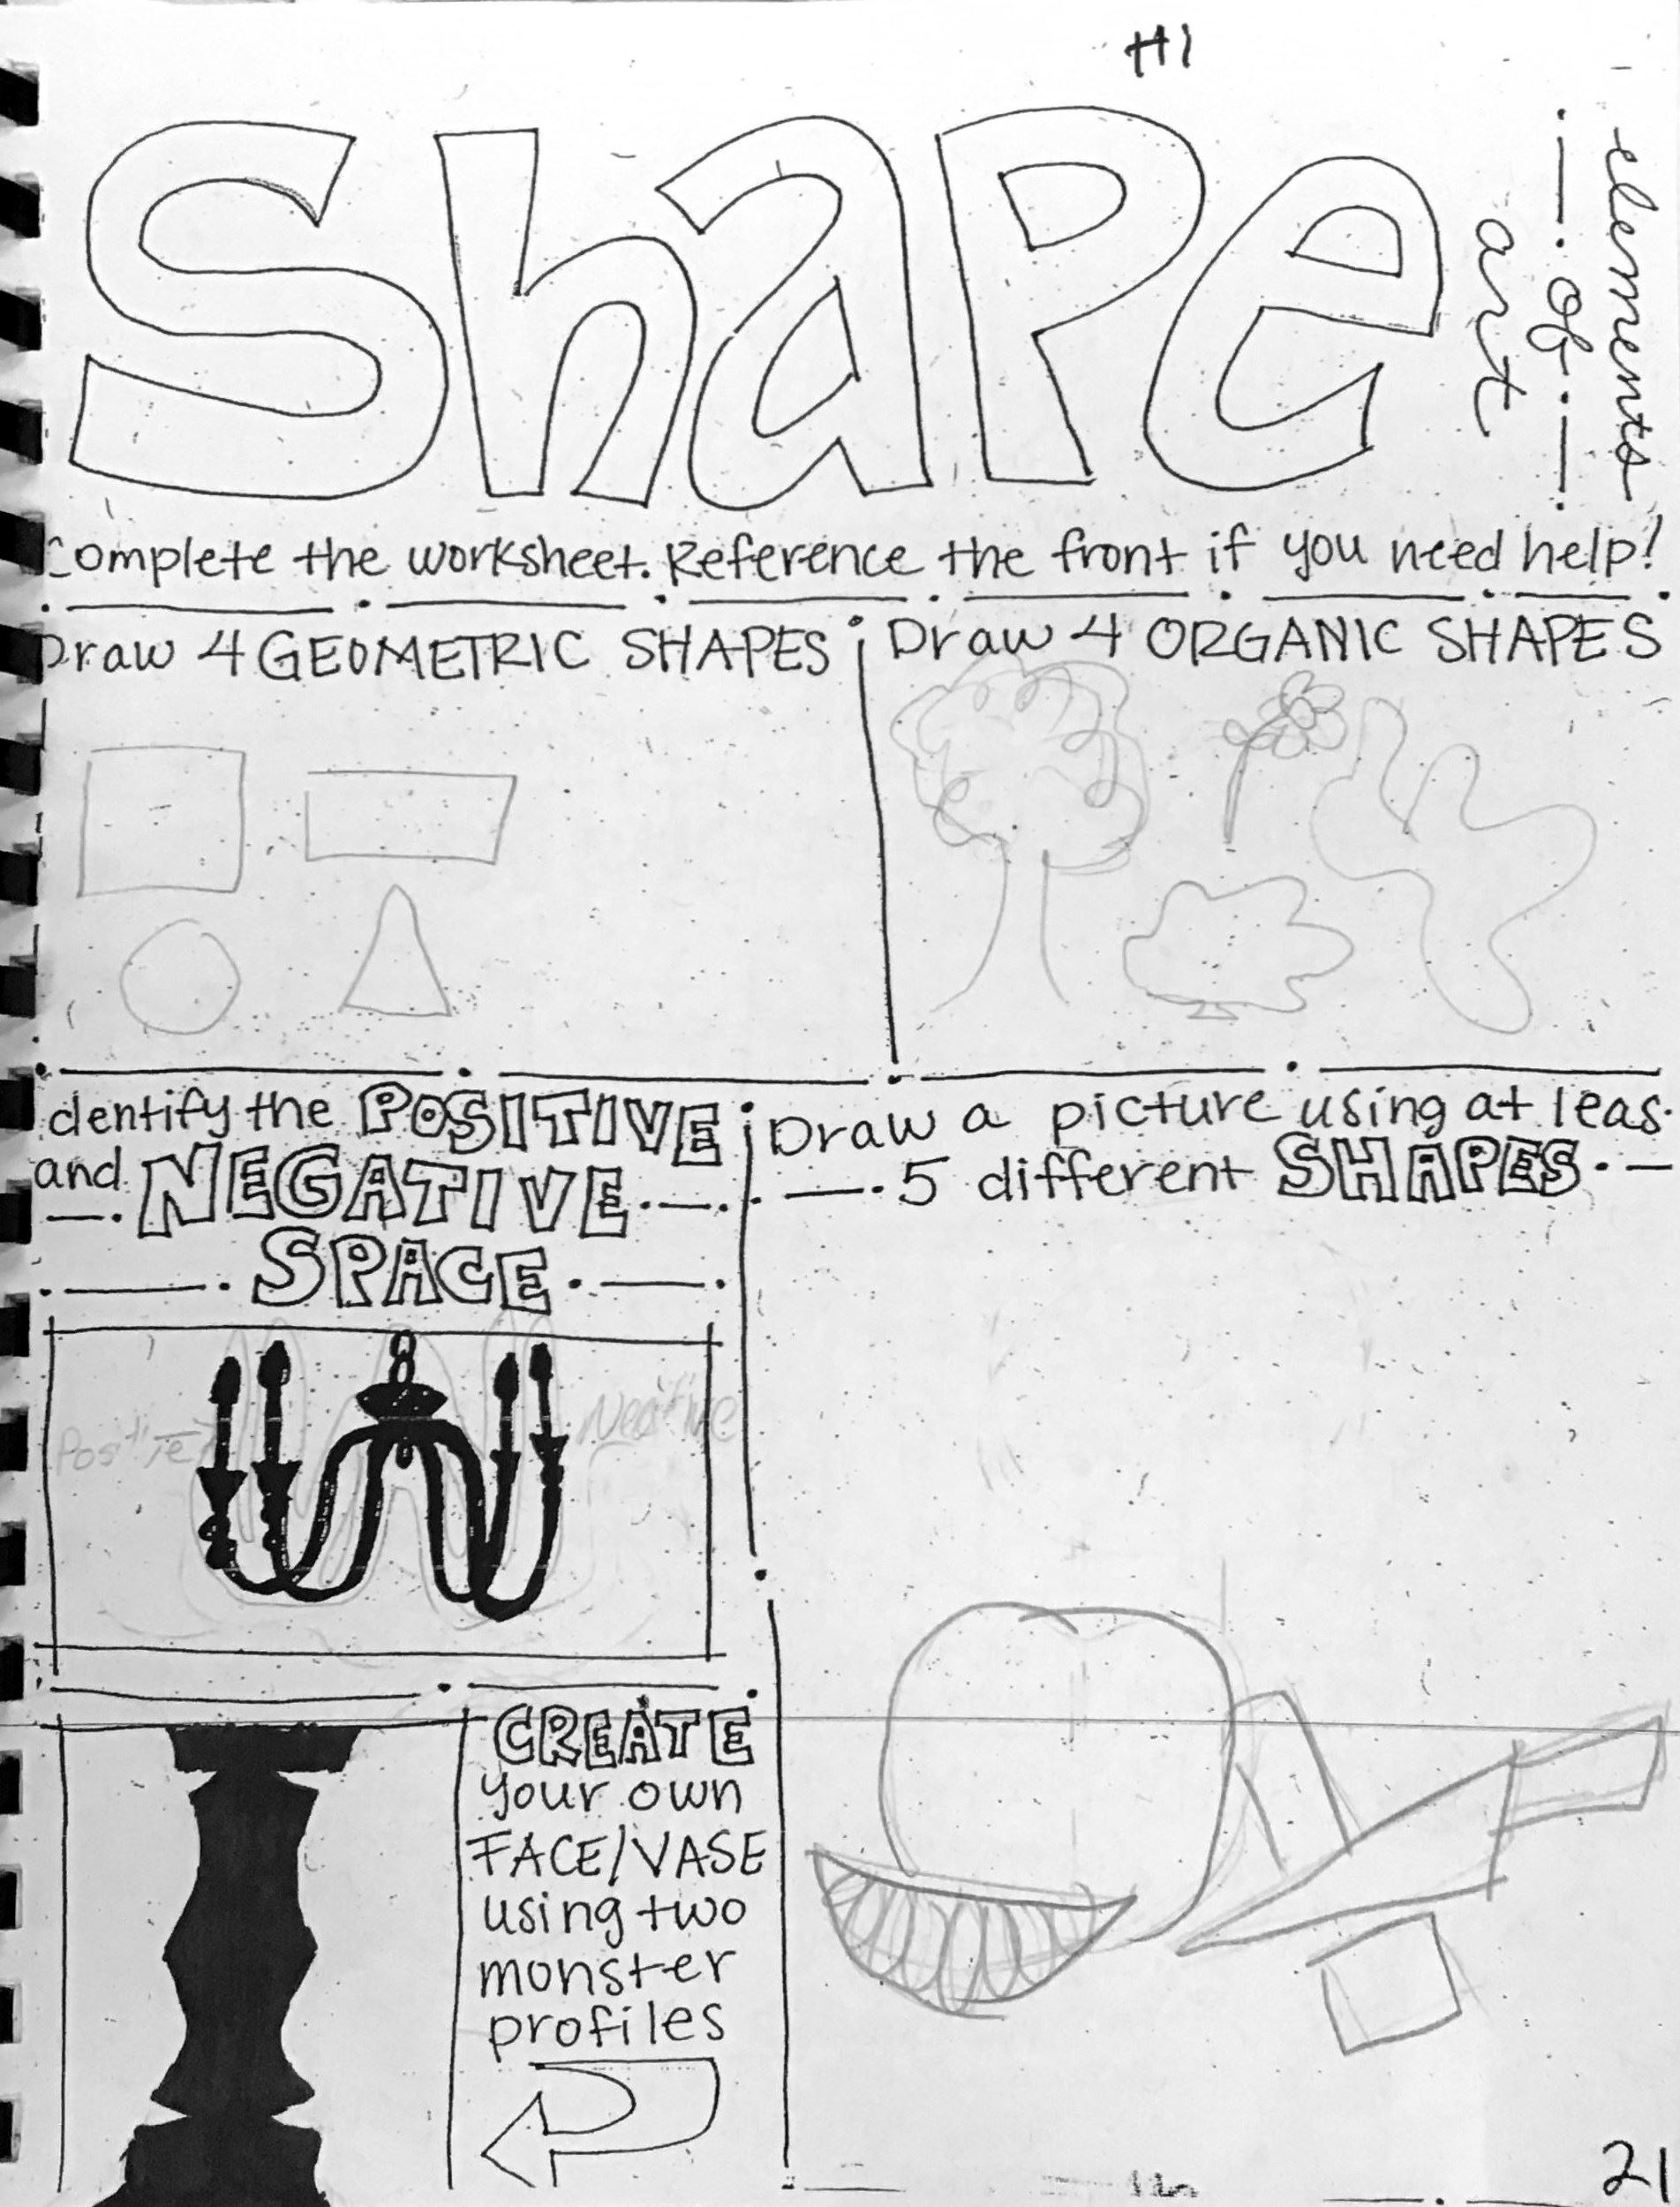 HI
ShaPe
elements
of
art
Complete the worksheet. Reference the front if you need help!
Draw 4 GEOMETRIC SHAPES
Draw 4 ORGANIC SHAPES
dentify the POSITIVE
and NEGATIVE
SPACE
Positive
Negative
Draw a picture using at leas
5 different SHAPES
CREATE
your own
FACE/VASE
using two
monster
profiles
21